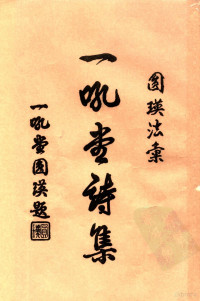 圆瑛法彙
一吼堂詩集
一吼堂圆瑛題